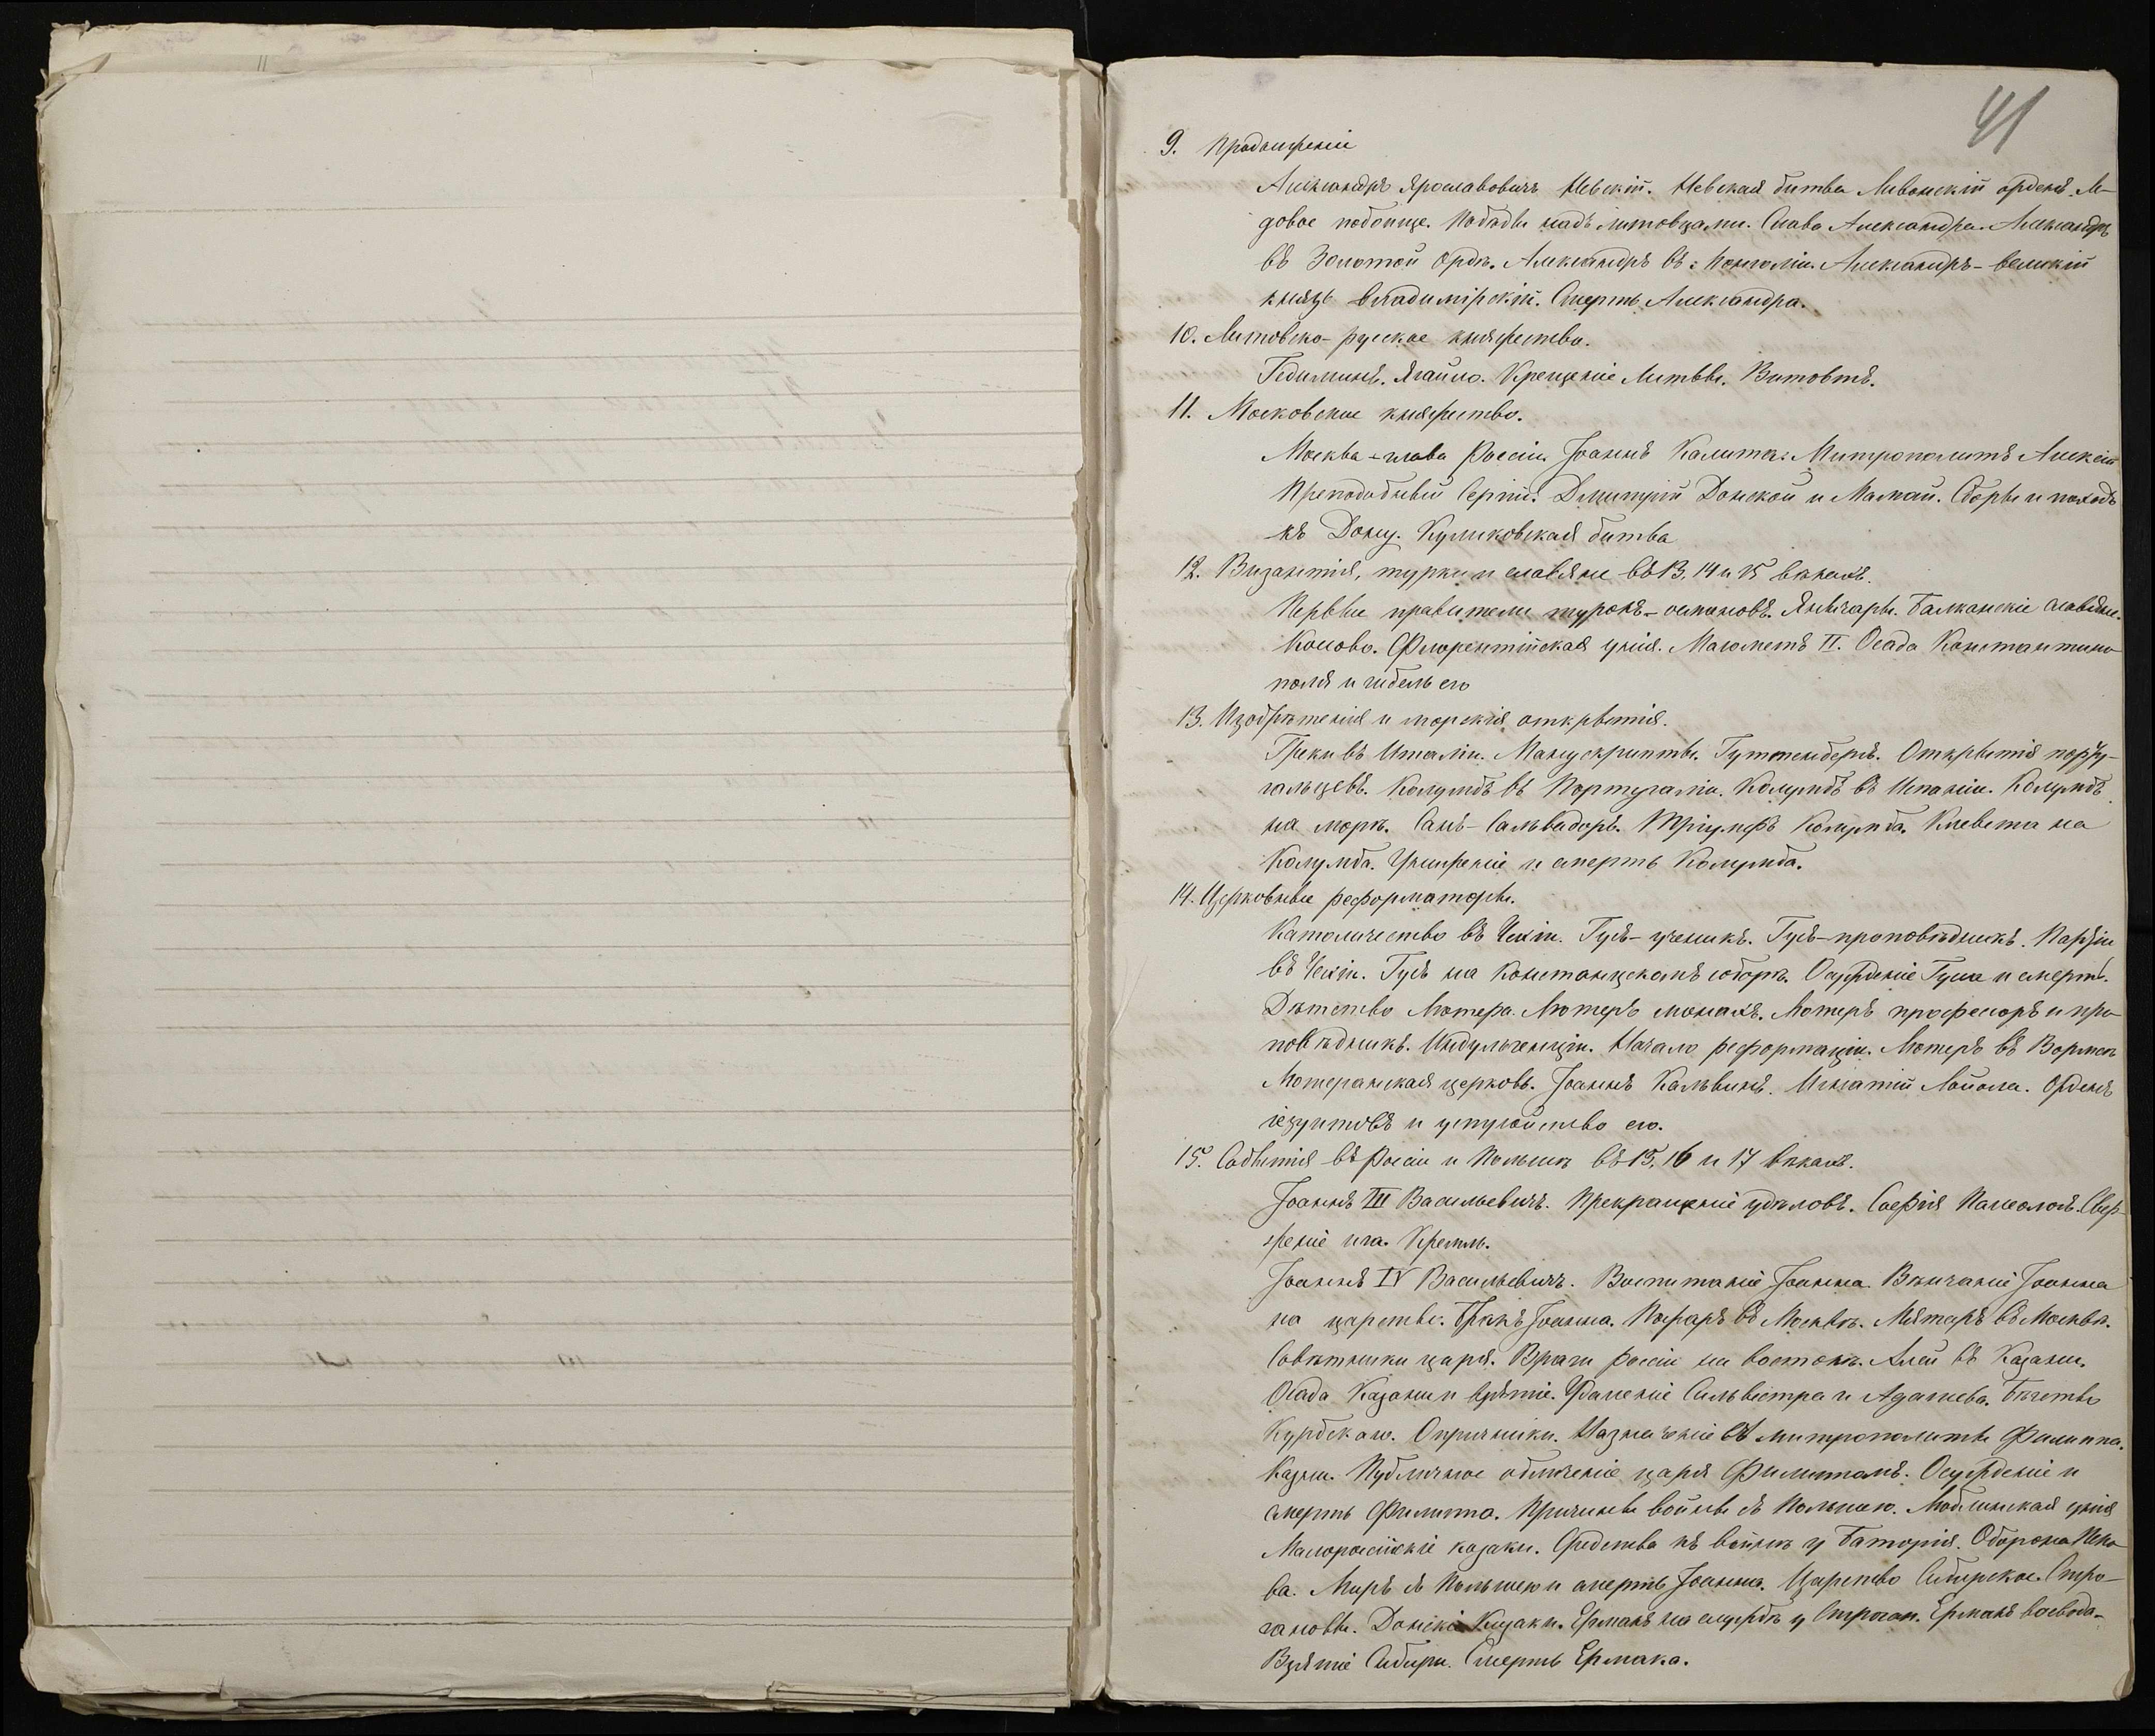 41
9. Продолженіе
Александръ Ярославовичъ Невскій. Невская битва Ливонскій орденъ. Ле-
довое побоище. Победы надъ литовцами. Слава Александра. Александръ
въ Золотой Ордѣ. Александръ въ Монголіи. Александръ - великій
князь владимірскій. Смерть Александра.
10. Литовско-русское княжество.
Гедиминъ. Ягайло. Крещеніе Литвы. Витовтъ.
11. Московское княжество.
Москва - глава Россіи. Іоаннъ Калита. Митрополитъ Алексій
Преподобный Сергій. Дмитрій Донской и Мамай. Сборы и походъ
къ Дону. Куликовская битва
12. Византія, турки и славяне въ 13, 14 и 15 вѣкахъ.
Первые правители турокъ-османовъ. Янычары. Балканскіе славяне.
Косово. Флорентійская унія. Магометъ II. Осада Константино-
поля и гибель его
13. Изобрѣтенія и морскія открытія.
Греки въ Италіи. Манускрипты. Гуттенбергъ. Открытія порту-
гальцевъ. Колумбъ въ Португаліи. Колумбъ въ Испаніи. Колумбъ
на морѣ. Санъ-Сальвадоръ. Тріумфъ Колумба. Клевета на
Колумба. Униженіе и смерть Колумба.
14. Церковные реформаторы.
Католичество въ Чехіи. Гусъ-ученикъ. Гусъ-проповѣдникъ. Партіи
въ Чехіи. Гусъ на Констанцскомъ соборѣ. Осужденіе Гуса и смерть.
Дѣтство Лютера. Лютеръ монахъ. Лютеръ профессоръ и про-
повѣдникъ. Индульгенціи. Начало реформаціи. Лютеръ въ Вормсѣ
Лютеранская церковь. Іоаннъ Кальвинъ. Игнатій Лойола. Орденъ
іезуитовъ и устройство его.
15. Событія въ Россіи и Польшѣ въ 15, 16 и 17 вѣкахъ.
Іоаннъ III Васильевичъ. Прекращеніе удѣловъ. Софія Палеологъ. Свер-
женіе ига. Кремль.
Іоаннъ IV Васильевичъ. Воспитаніе Іоанна. Вѣнчаніе Іоанна
на царство. Бракъ Іоанна. Пожаръ въ Москвѣ. Мятежъ въ Москвѣ.
Совѣтники царя. Враги Россіи на востокѣ. Алей въ Казани.
Осада Казани и взятіе. Удаленіе Сильвестра и Адашева. Бѣгство
Курбскаго. Опричники. Назначеніе въ митрополиты Филиппа.
Казни. Публичное обличеніе царя Филиппомъ. Осужденіе и
смерть Филиппа. Причины войны съ Польшею. Люблинская унія
Малороссійскіе казаки. Средства къ войнѣ у Баторія. Оборона Пско-
ва. Миръ съ Польшею и смерть Іоанна. Царство Сибирское. Стро-
гановы. Донскіе Казаки. Ермакъ на службѣ у Строган. Ермакъ воевода-
Взятіе Сибири. Смерть Ермака.